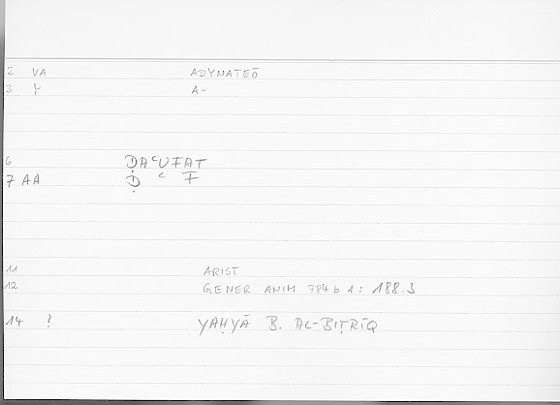 2 VA ADYNATEŌ
3 Y A-
6 ḌAʿUFAT
7 AA Ḍ ʿ F
11 ARIST
12 GENER ANIM 784 b 1: 188.3
14 ? YAḤYĀ B. AL-BIṬRĪQ